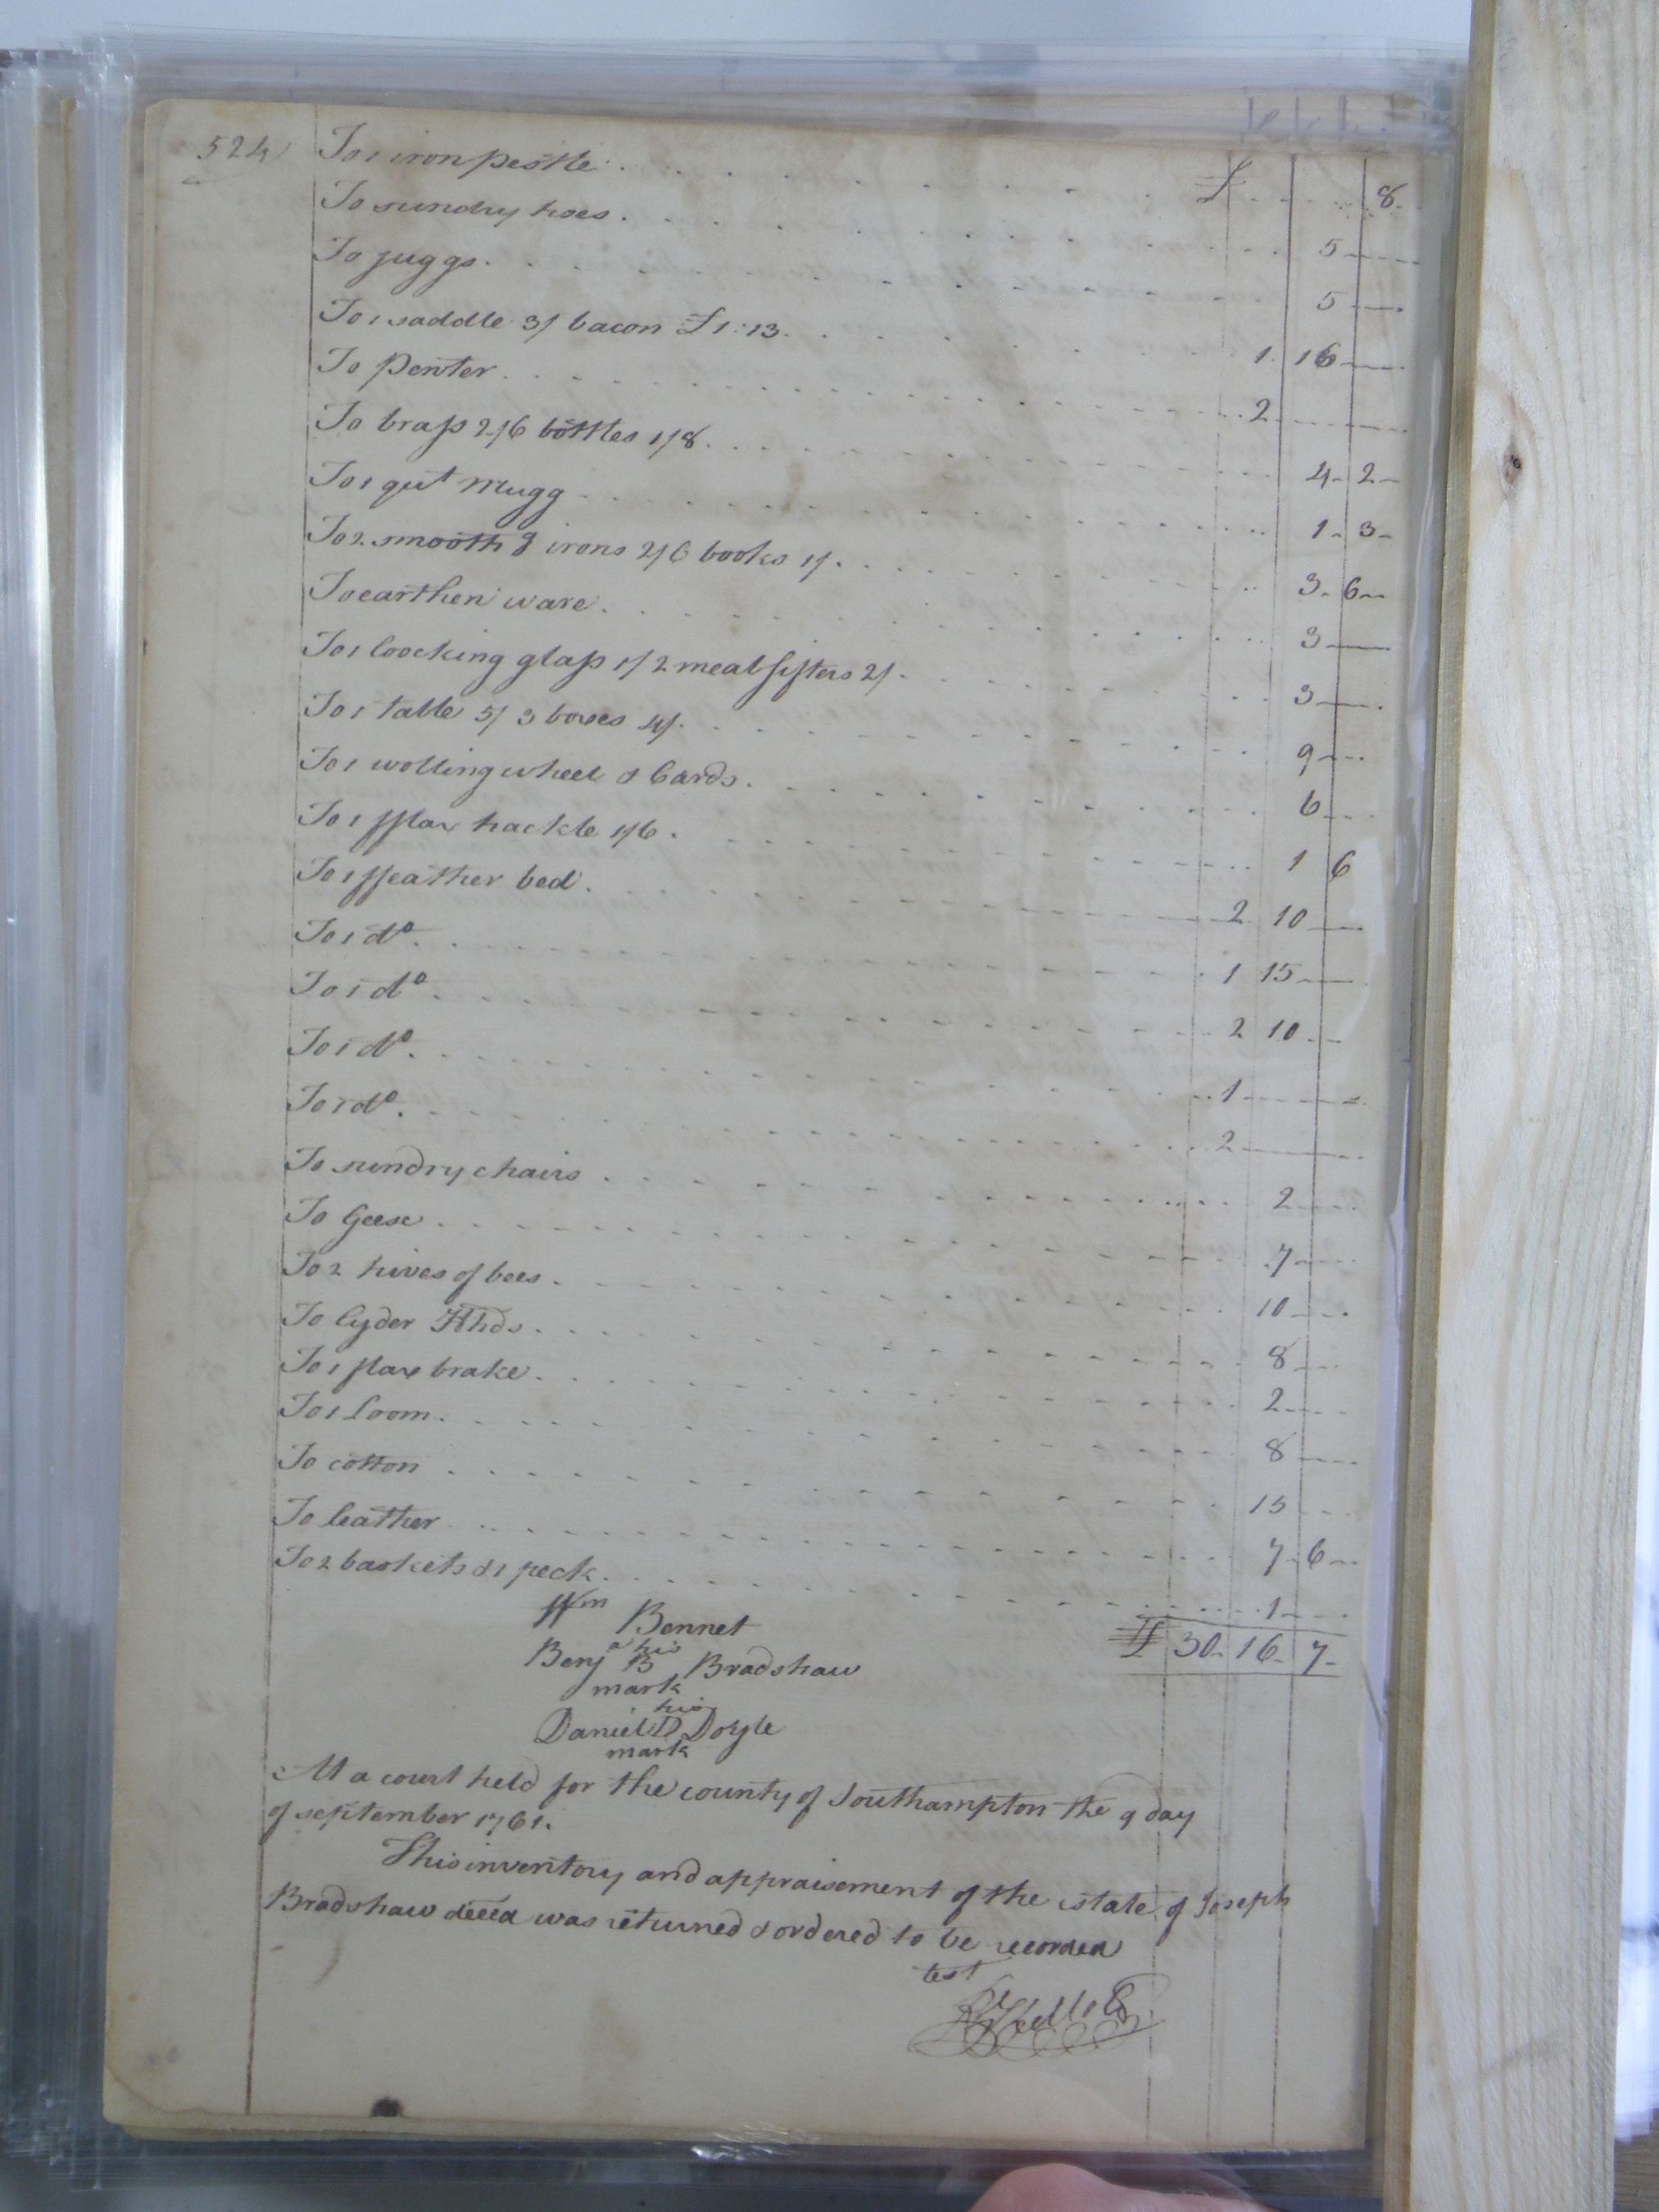 524
To 1 iron pestle £ 8
To sundry hoes 5
To juggs 5
To 1 saddle 3/ bacon £1:13 1 16
To Pewter 2
To brass 2/6 bottles 1/8 4 2
To 1 qut mugg 1 3
To 2 smooth g irons 2/6 books 1/ 3 6
To earthen ware 3
To 1 loocking glass 1/ 2 meal sifters 2/ 3
To 1 table 5/ 3 boxes 4/ 9
To 1 wolling wheel & Cards 6
To 1 fflax hackle 1/6 1 6
To 1 ffeather bed 2 10
To 1 do 1 15
To 1 do 2 10
To 1 do 1
To 1 do 2
To sundry chairs 2
To Geese 7
To 2 hives of bees 10
To Cyder Hhds 8
To 1 flax brake 2
To 1 loom 8
To cotton 15
To leather 7 6
To 2 baskets & 1 peck 1
Wm Bennet £ 30 16 7
Benja his B mark Bradshaw
Daniel his D mark Doyle
At a court held for the county of Southampton the 9 day
of september 1761.
This inventory and appraisement of the estate of Joseph
Bradshaw decea was returned & ordered to be recorded
test